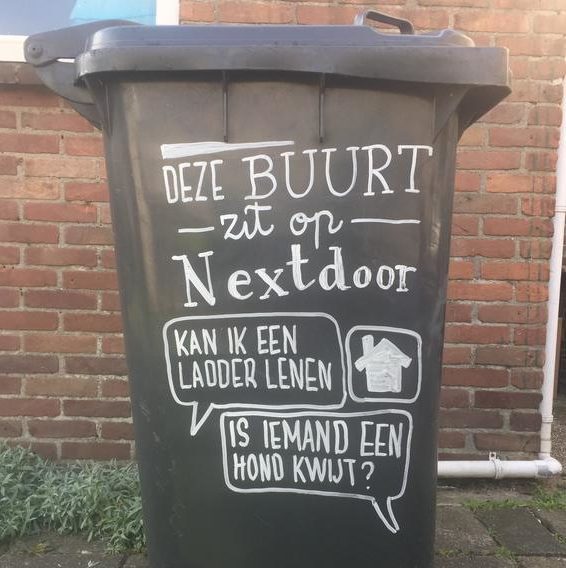 DEZE BUURT
zit op
Nextdoor
KAN IK EEN
LADDER LENEN
IS IEMAND EEN
HOND KWIJT?